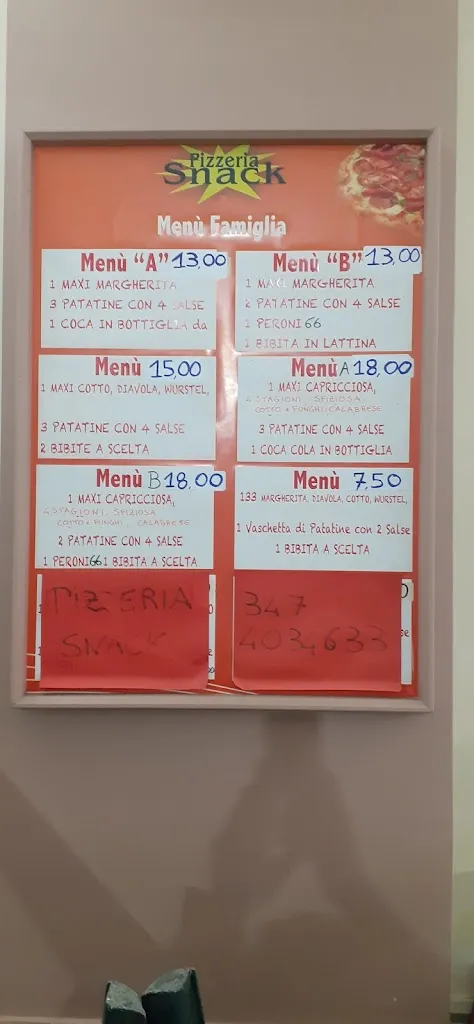 Pizzeria
Snack
Menù Famiglia
Menù "A" 13,00
1 MAXI MARGHERITA
3 PATATINE CON 4 SALSE
1 COCA IN BOTTIGLIA da
Menù "B" 13,00
1 MAXI MARGHERITA
2 PATATINE CON 4 SALSE
1 PERONI 66
1 BIBITA IN LATTINA
Menù 15,00
1 MAXI COTTO, DIAVOLA, WURSTEL,
3 PATATINE CON 4 SALSE
2 BIBITE A SCELTA
Menù A 18,00
1 MAXI CAPRICCIOSA,
4 STAGIONI, SPIZIOSA
COTTO e FUNGHI, CALABRESE
3 PATATINE CON 4 SALSE
1 COCA COLA IN BOTTIGLIA
Menù B 18,00
1 MAXI CAPRICCIOSA,
4 STAGIONI, SPIZIOSA
COTTO e FUNGHI, CALABRESE
2 PATATINE CON 4 SALSE
1 PERONI 66 1 BIBITA A SCELTA
Menù 7,50
133 MARGHERITA, DIAVOLA, COTTO, WURSTEL,
1 Vaschetta di Patatine con 2 Salse
1 BIBITA A SCELTA
PIZZERIA
SNACK
347
4034633